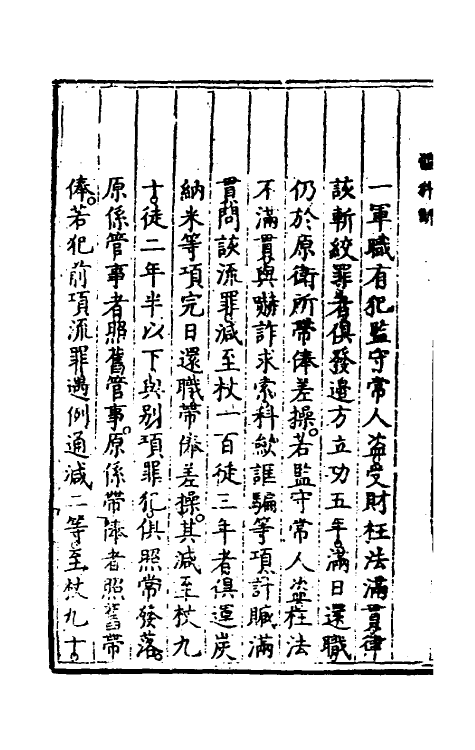 一軍職有犯監守常人盗受財枉法滿貫律
該斬絞罪者俱發邊方立功五年滿日還職
仍於原衛所帶俸差操若監守常人盗枉法
不滿貫與嚇詐求索科歛誆騙等項計贓滿
貫問該流罪減至杖一百徒三年者俱運炭
納米等項完日還職帶俸差操其減至杖九
十徒二年半以下與别項罪犯俱照常發落
原係管事者照舊管事原係帶俸者照舊帶
俸若犯前項流罪遇例通減二等至杖九十